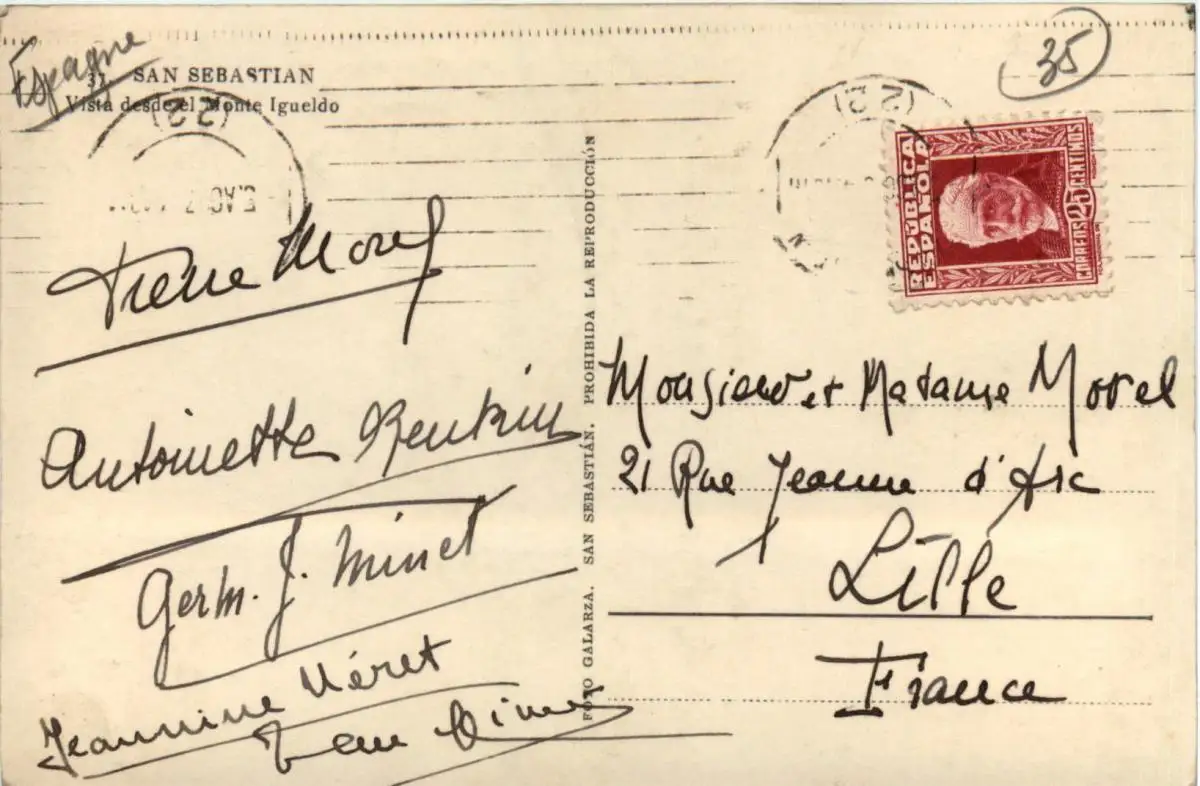 Espagne
37. SAN SEBASTIAN
Vista desde el Monte Igueldo
35
(22)
(22)
REPÚBLICA
ESPAÑOLA
CORREOS 25 CENTIMOS
Morel
Antoinette Renkin
Germ. J. Minet
Jeannine Néret
Jean
FOTO GALARZA. SAN SEBASTIÁN. PROHIBIDA LA REPRODUCCIÓN
Monsieur et Madame Morel
21 Rue Jeanne d'Arc
Lille
France